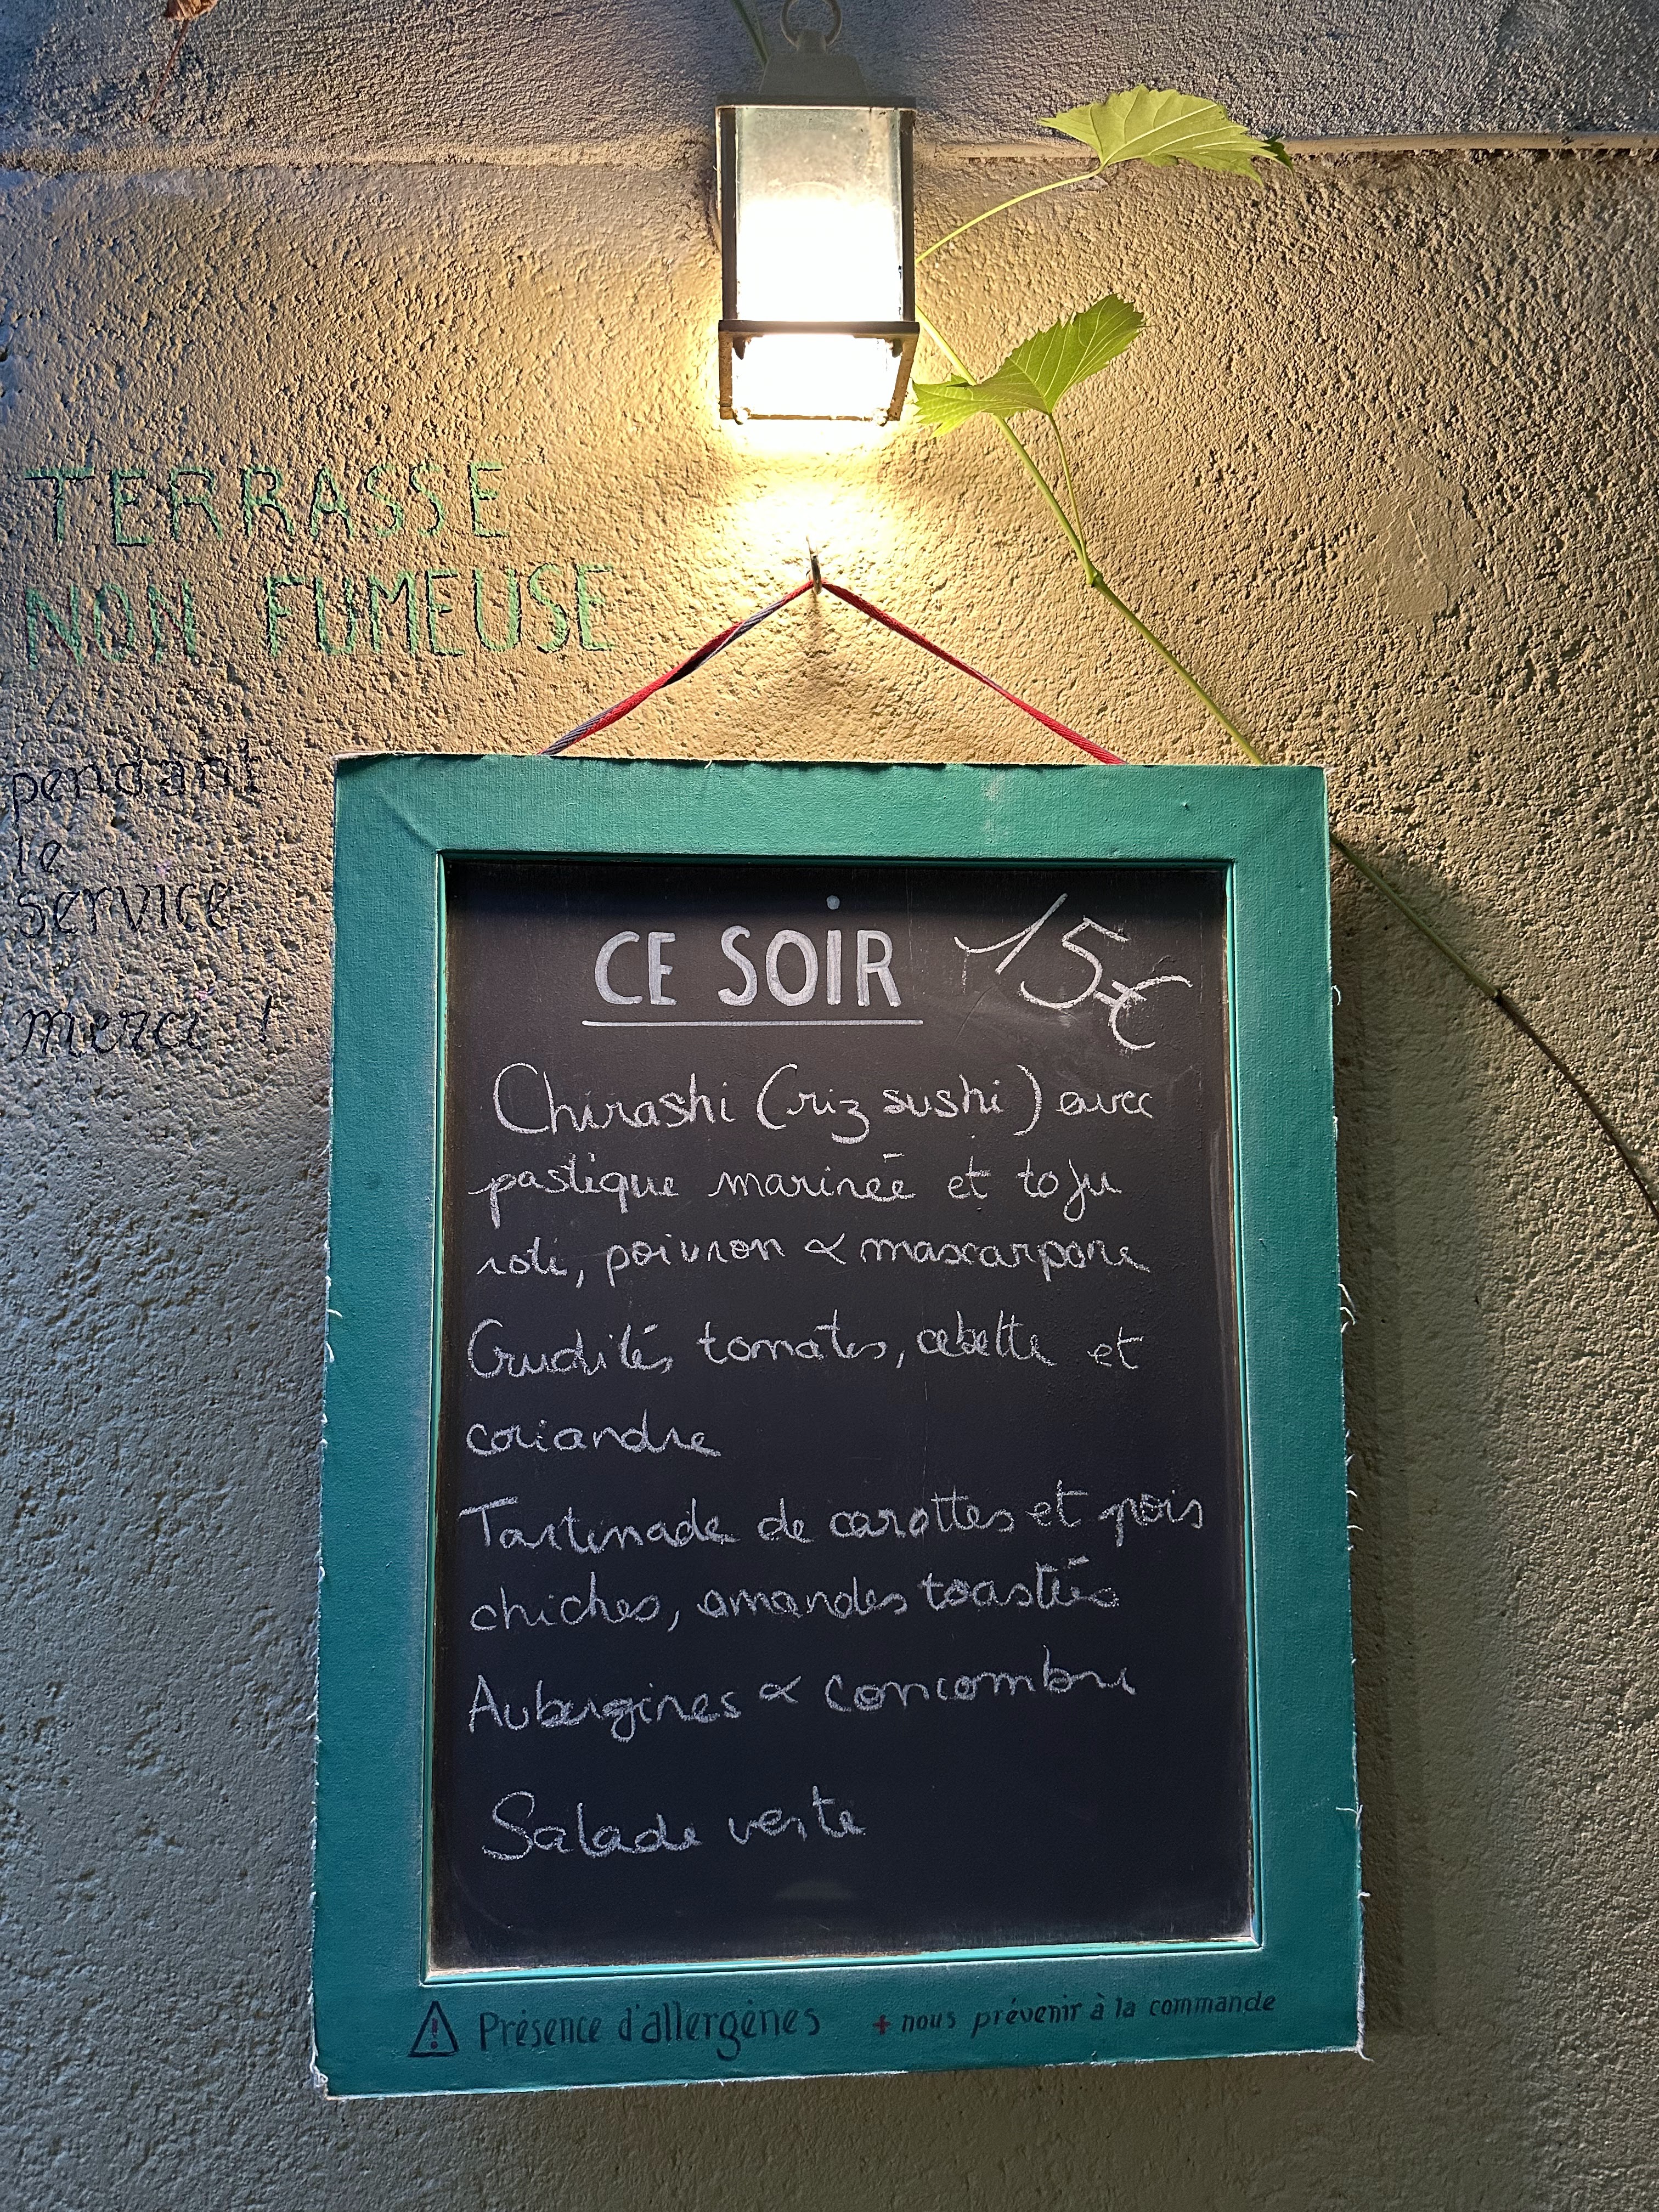 TERRASSE
NON FUMEUSE
pendant
le
service
merci !
CE SOIR 15€
Chirashi (riz sushi) avec
pastèque marinée et tofu
roti, poivron & mascarpone
Crudités tomates, cebette et
coriandre
Tartinade de carottes et pois
chiches, amandes toastées
Aubergines & concombre
Salade verte
⚠ Présence d'allergènes + nous prévenir à la commande